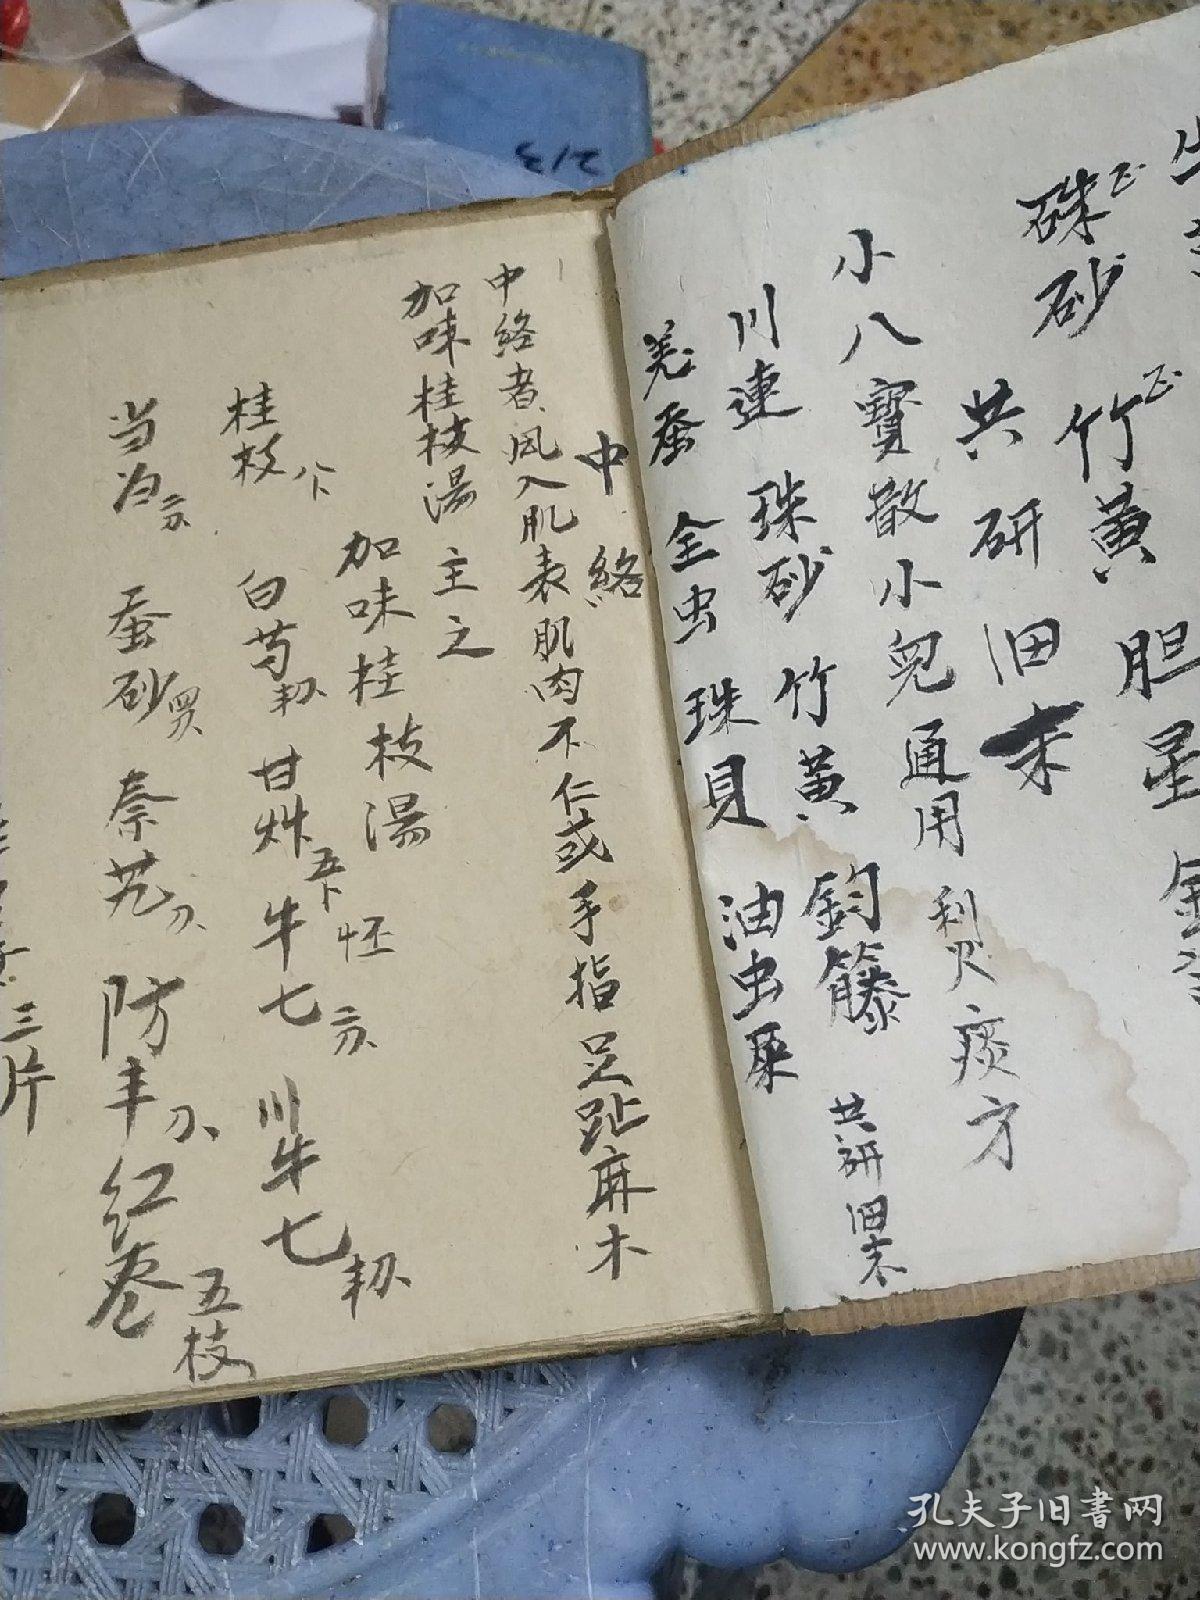 硃砂 竹黄 胆星
共研田末
小八寳散小兒通用 利火痰方
川連 珠砂 竹黄 鈎籐 共研田末
姜蚕 全虫 珠貝 油虫
中絡
中絡者風入肌表肌肉不仁或手指足趾麻木
加味桂枝湯主之
加味桂枝湯
桂枝 白芍 甘艸 牛七 川牛七
当归 蚕砂 秦艽 防丰 红枣 五枝
三片
213
孔夫子旧书网
www.kongfz.com